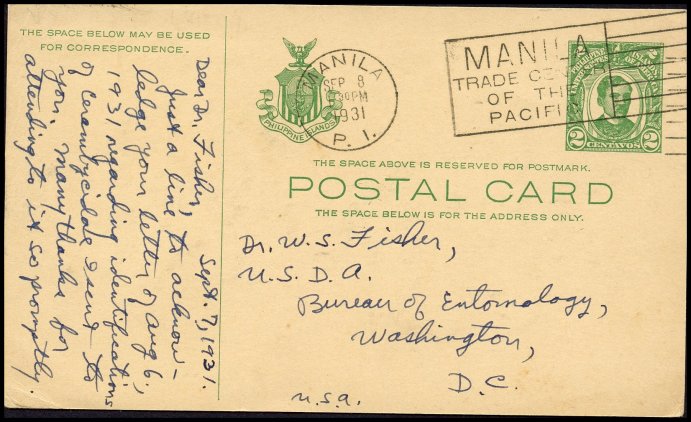 THE SPACE BELOW MAY BE USED
FOR CORRESPONDENCE.
Sept. 7, 1931.
Dear Dr. Fisher,
Just a line to acknow-
ledge your letter of Aug 6,
1931 regarding identifications
of cerambycidae I sent to
you. Many thanks for
attending to it so promptly.
PHILIPPINE ISLANDS
MANILA
SEP 8
PM
1931
P. I.
MANILA
TRADE CE
OF THE
PACIFI
2 CENTAVOS 2
THE SPACE ABOVE IS RESERVED FOR POSTMARK.
POSTAL CARD
THE SPACE BELOW IS FOR THE ADDRESS ONLY.
Dr. W. S. Fisher,
U. S. D. A.
Bureau of Entomology,
Washington,
D. C.
U.S.A.